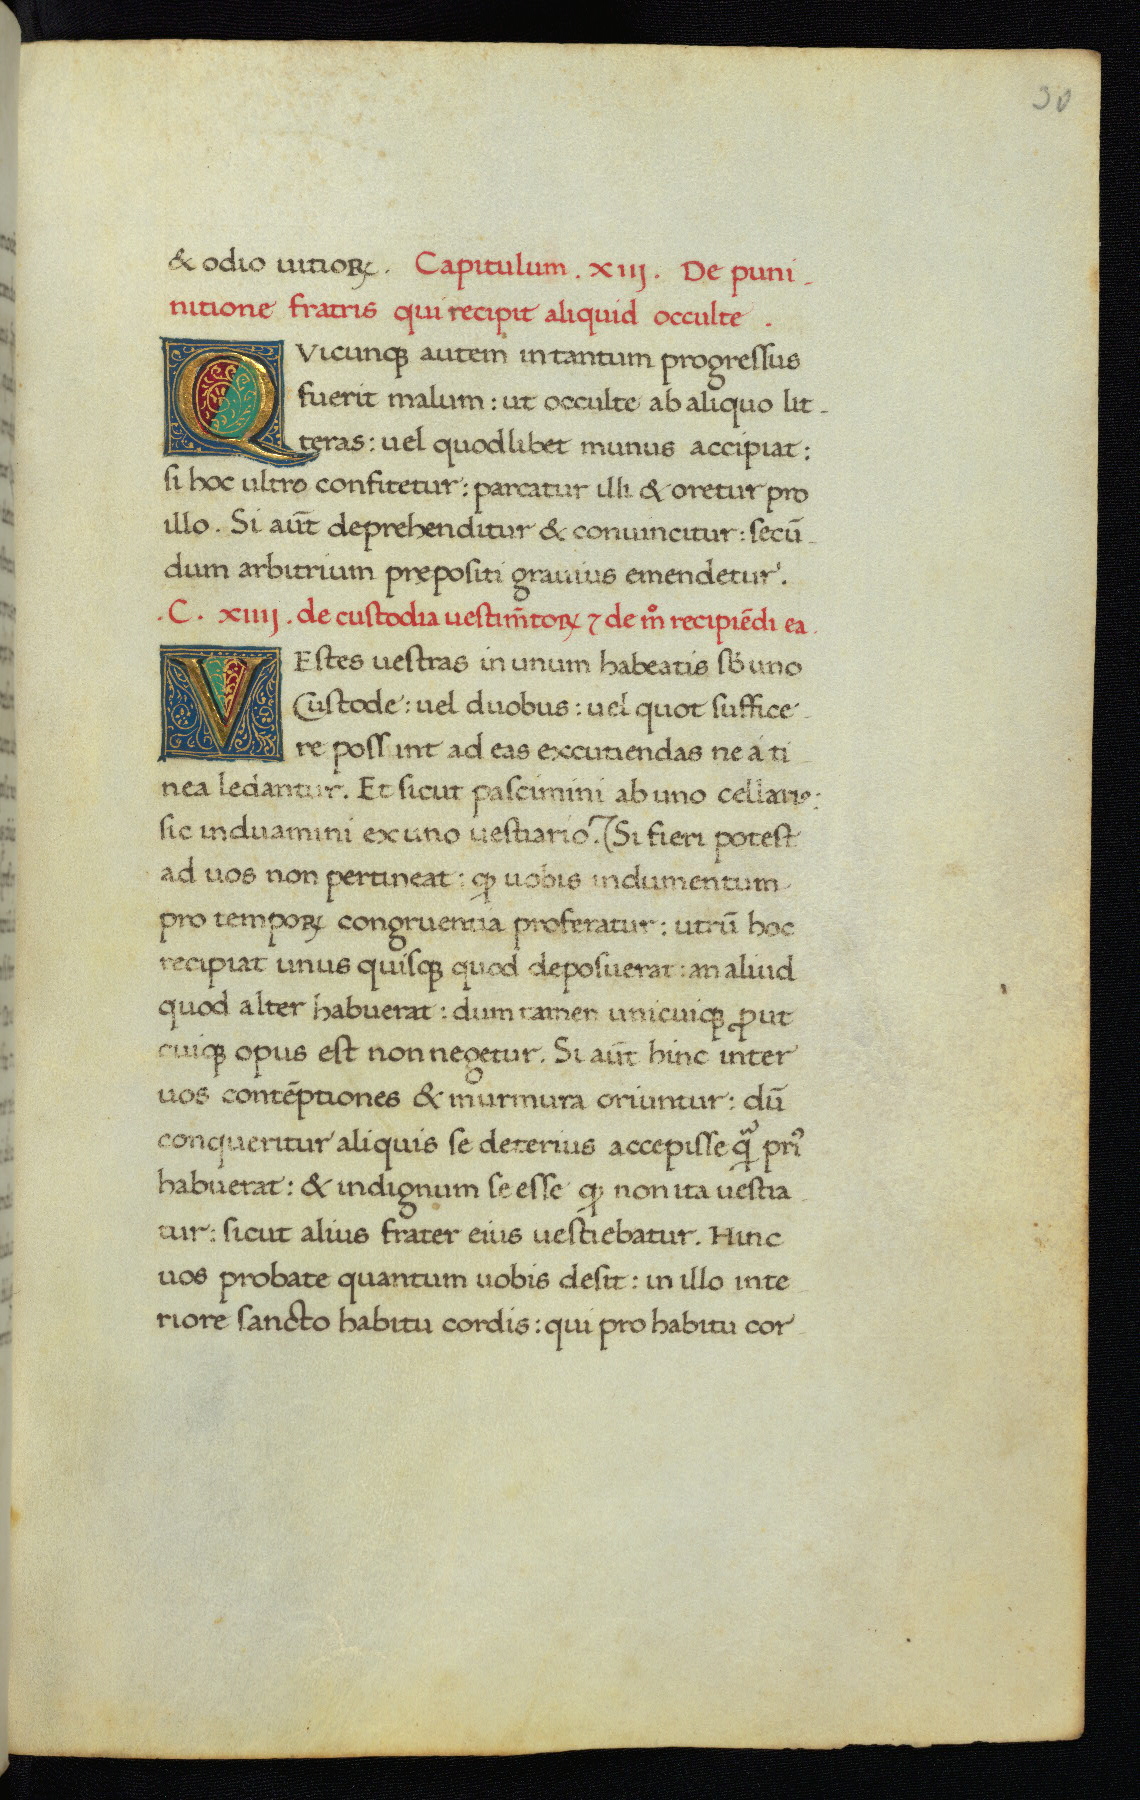 30
& odio uitioꝝ. Capitulum . xiii . De puni-
nitione fratris qui recipit aliquid occulte .
QVicunqꝫ autem in tantum progressus
fuerit malum : ut occulte ab aliquo lit-
teras : uel quodlibet munus accipiat :
si hoc ultro confitetur : parcatur illi & oretur pro
illo . Si aūt deprehenditur & conuincitur : secū-
dum arbitrium prepositi grauius emendetur .
. C . xiiii . de custodia uestim̄toꝝ ⁊ de mº recipiēdi ea .
VEstes uestras in unum habeatis sb̄ uno
Custode : uel duobus : uel quot suffice-
re possint ad eas excutiendas ne a ti-
nea ledantur . Et sicut pascimini ab uno cellario :
sic induamini ex uno uestiario . Si fieri potest
ad uos non pertineat : qꝫ uobis indumentum
pro tempoꝝ congruentia proferatur : utrū hoc
recipiat unus quisqꝫ quod deposuerat : an aliud
quod alter habuerat : dum tamen unicuiqꝫ ꝓut
cuiqꝫ opus est non negetur . Si aūt hinc inter
uos contēptiones & murmura oriuntur : dū
conqueritur aliquis se deterius accepisse qᷓ pri᾽
habuerat : & indignum se esse qꝫ non ita uestia-
tur : sicut alius frater eius uestiebatur . Hinc
uos probate quantum uobis desit : in illo inte-
riore sancto habitu cordis : qui pro habitu cor-